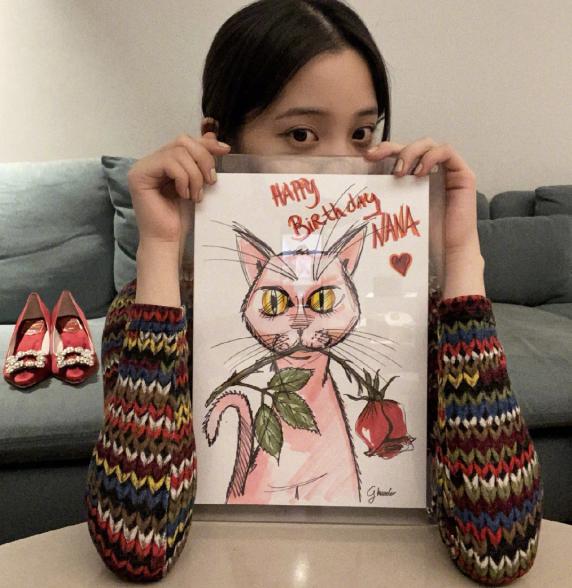 HAPPY
Birthday
NANA